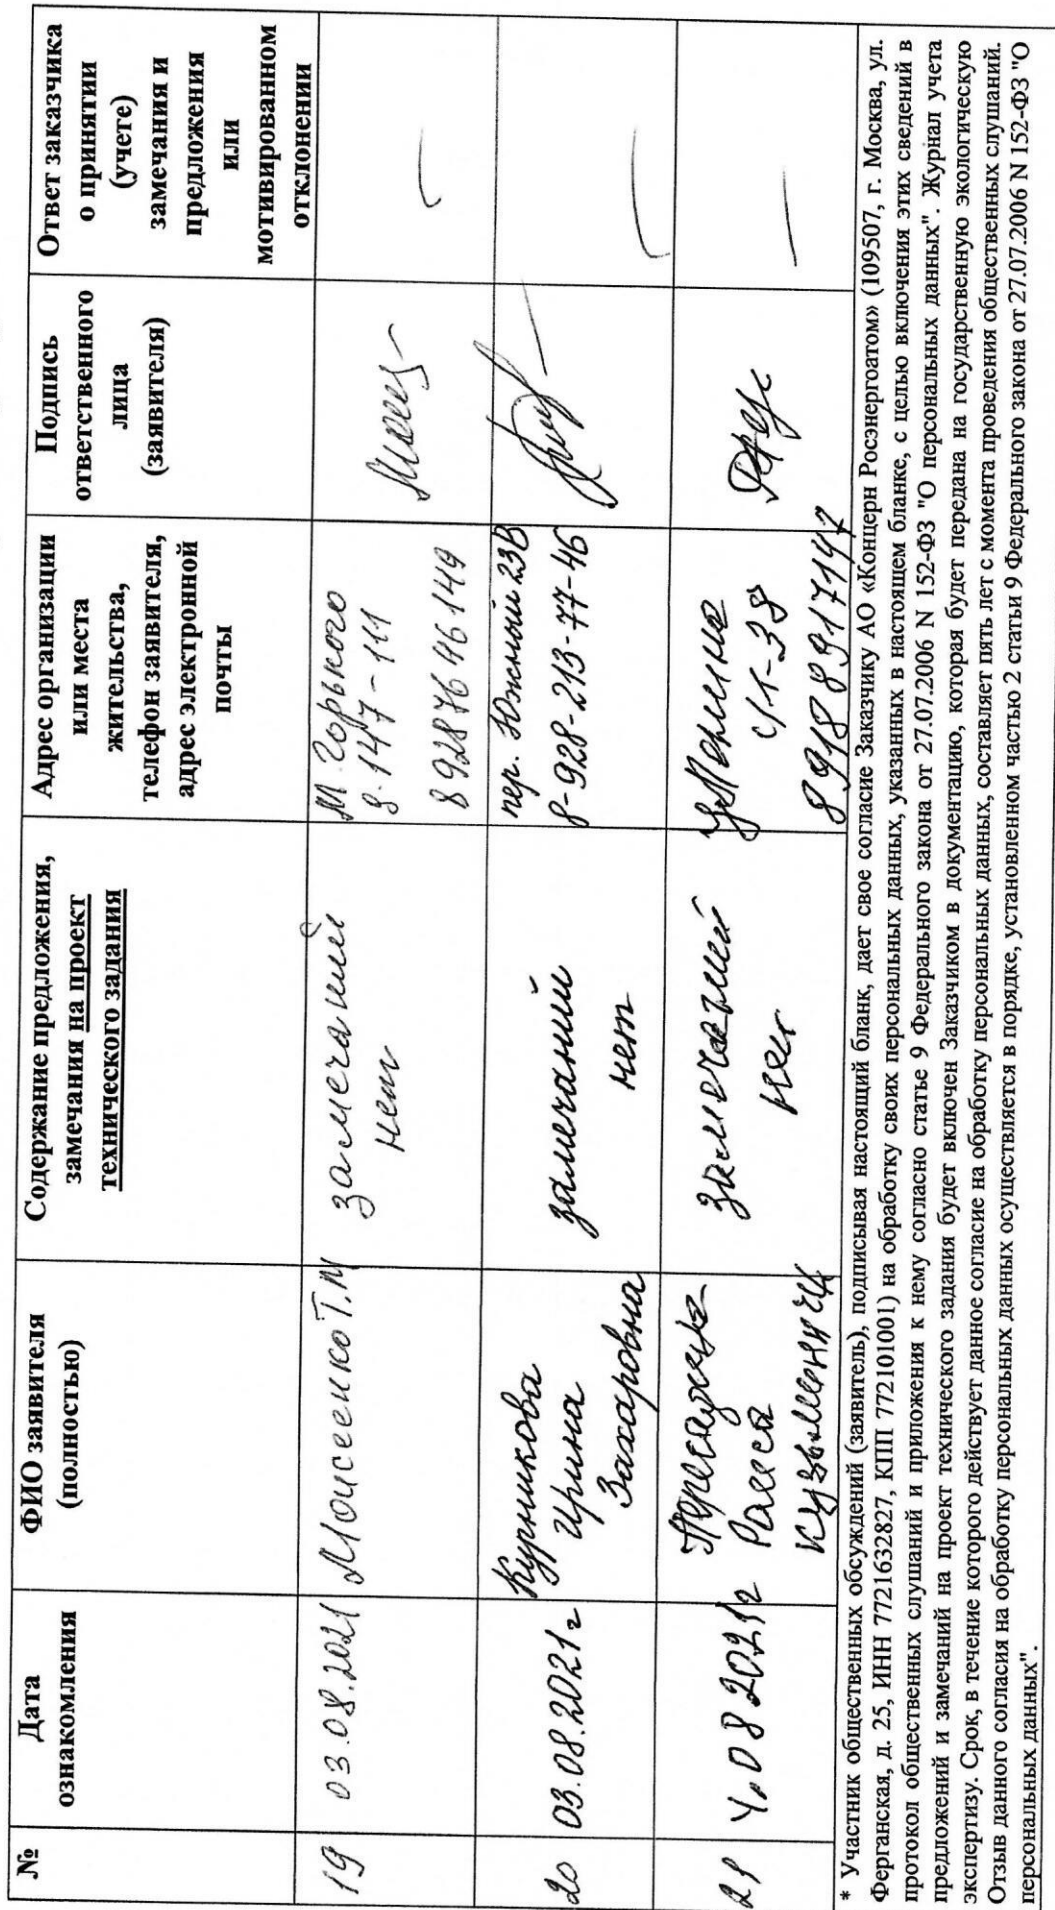 №
Дата
ознакомления
ФИО заявителя
(полностью)
Содержание предложения,
замечания на проект
технического задания
Адрес организации
или места
жительства,
телефон заявителя,
адрес электронной
почты
Подпись
ответственного
лица
(заявителя)
Ответ заказчика
о принятии
(учете)
замечания и
предложения
или
мотивированном
отклонении
19
03.08.2021
Моисеенко Т.М
замечаний
нет
М. Горького
147-111
89287646149
20
03.08.2021г
Курникова
Ирина
Захаровна
замечаний
нет
пер. Южный 23В
8-928-213-77-46
21
4.08 2021г
Раиса
замечаний
нет
Ленина
* Участник общественных обсуждений (заявитель), подписывая настоящий бланк, дает свое согласие Заказчику АО «Концерн Росэнергоатом» (109507, г. Москва, ул.
Ферганская, д. 25, ИНН 7721632827, КПП 772101001) на обработку своих персональных данных, указанных в настоящем бланке, с целью включения этих сведений в
протокол общественных слушаний и приложения к нему согласно статье 9 Федерального закона от 27.07.2006 N 152-ФЗ "О персональных данных". Журнал учета
предложений и замечаний на проект технического задания будет включен Заказчиком в документацию, которая будет передана на государственную экологическую
экспертизу. Срок, в течение которого действует данное согласие на обработку персональных данных, составляет пять лет с момента проведения общественных слушаний.
Отзыв данного согласия на обработку персональных данных осуществляется в порядке, установленном частью 2 статьи 9 Федерального закона от 27.07.2006 N 152-ФЗ "О
персональных данных".